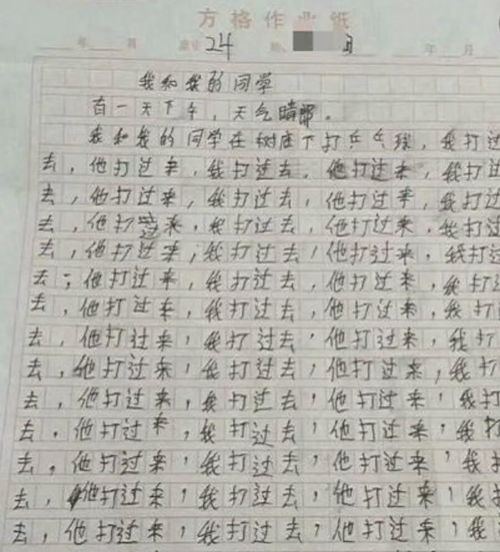 方格作业纸
年 月 24 年 月
我和我的同学
有一天下午，天气晴朗。
我和我的同学在树底下打乒乓球，我打过
去，他打过来，我打过去，他打过来，我打过
去，他打过来，我打过去，他打过来，我打过
去，他打过来，我打过去，他打过来，我打过
去，他打过来，我打过去，他打过来，我打过
去，他打过来，我打过去，他打过来，我打
去，他打过来，我打过去，他打过来，我打
去，他打过来，我打过去，他打过来，我打
去，他打过来，我打过去，他打过来，我打
去，他打过来，我打过去，他打过来，我打
去，他打过来，我打过去，他打过来，我打
去，他打过来，我打过去，他打过来，我打
去，他打过来，我打过去，他打过来，我
去，他打过来，我打过去，他打过来，我